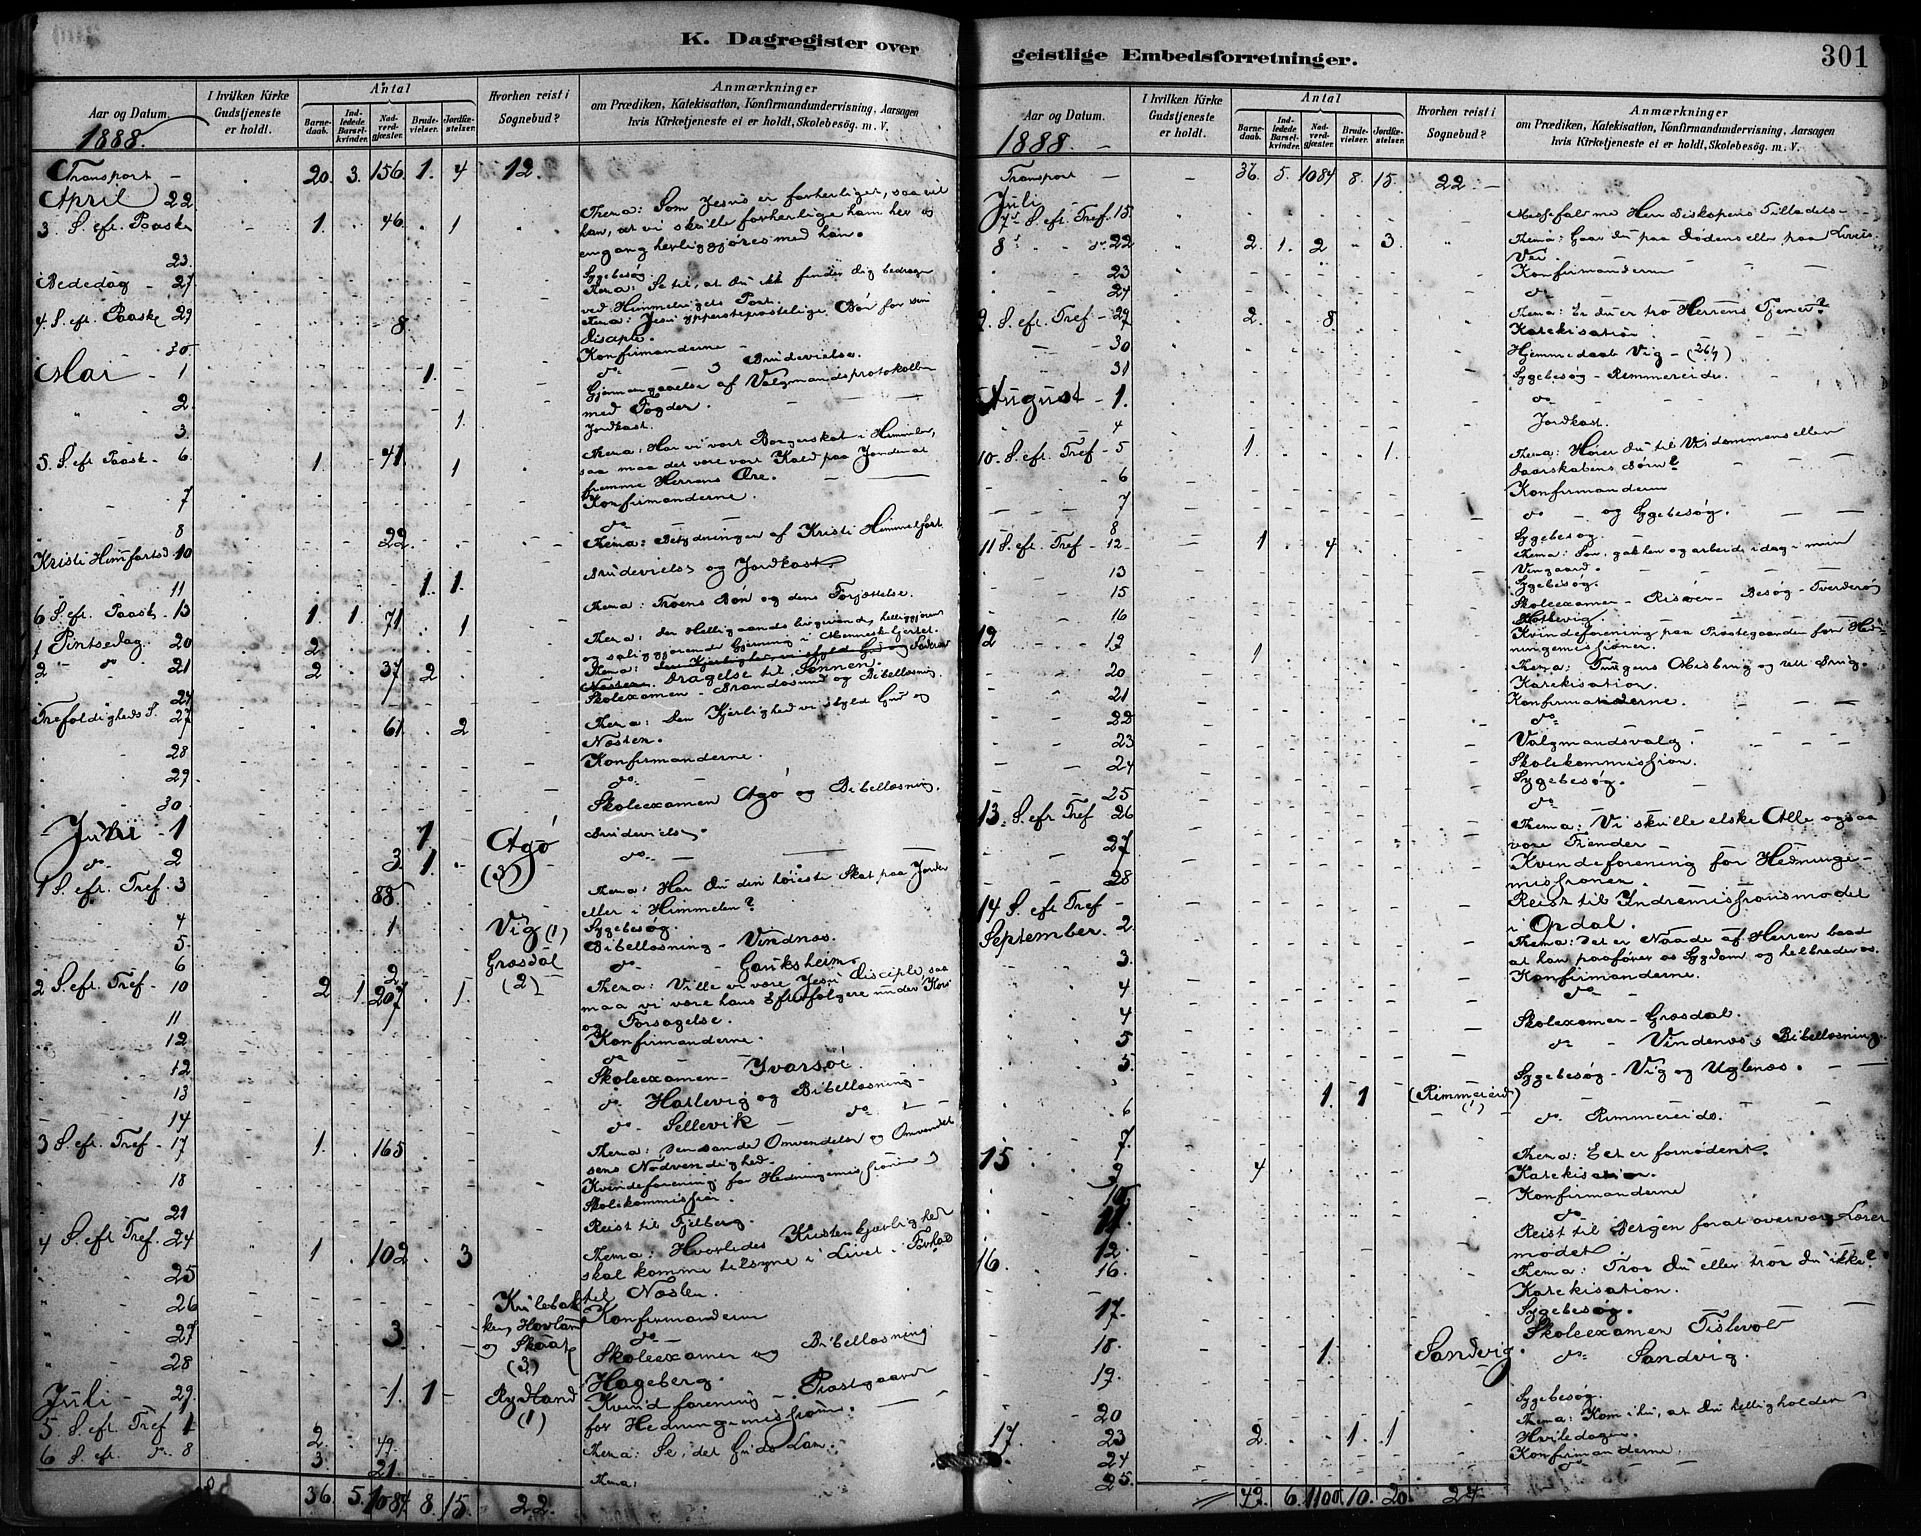 K. Dagregister over
Aar og Datum.
1888.
I hvilken Kirke
Gudstjeneste
er holdt.
Antal
Barne-
daab.
Ind-
ledede
Barsel-
kvinder.
Nad-
verd-
gjæster.
Brude-
vielser.
Jordfæ-
stelser.
Hvorhen reist i
Sognebud?
Anmærkninger
om Prædiken, Katekisation, Konfirmandundervisning, Aarsagen
hvis Kirketjeneste ei er holdt, Skolebesög. m. V.
Transport - 20. 3. 156. 1. 4 12.
April 22 Thema: Som Jesus er forherliget, saa vil
3 S. eft. Paaske 1. 46. 1 han, at vi skulle forherlige ham her og
engang herliggjøres med ham.
23. Sygebesøg.
Bededag - 27 Thema: Se til, at du ikke finder dig bedragen
ved Himmeriges Port.
4. S. eft. Paaske 29 8. Thema: Jesu ypperstepræstelige Bøn for sine
Disciple.
30. Konfirmanderne -
Mai - 1 1. do - Brudevielse.
Gjennemgaaelse af Valgmandsprotokollen
2. med Fogden.
3. 1. Jordkast.
5. S. eft Paask - 6. 1. 41. 1 Thema: Har vi vort Borgerskab i Himmelen,
saa maa det være vort Kald paa Jorden at
fremme Herrens Ære.
7 Konfirmanderne.
8 do
Kristi Himfartsd 10 22. Thema: Betydningen af Kristi Himmelfart
11 1. 1. Brudevielse og Jordkast.
6 S. eft Paask - 13 1. 1. 71. 1 Thema: Troens Bøn og dens Forjættelse.
1 Pintsedag. 20 2. Thema: Den Helligaands livgivende, helliggjørende
og saliggjørende Gjerning i Menneskehjertet.
2 - do - 21 2 37 2 Thema: den Kjærlighed vi skylde Gud og Faderens
Næsten. Dragelse til Sønnen.
24 Skoleexamen - Brandasund og Bibellæsning
Trefoldigheds S. 27 61. 2 Thema: Den Kjærlighed vi skylde Gud og
Næsten.
28 Konfirmanderne.
29 do
30. Skoleexamen Agø og Bibellæsning.
Juni - 1 1 Agø Brudevielse.
do 2 3. 1. (3) do
1 S. eft. Tref. 3 88. Thema: Har du din høieste Skat paa Jorden
eller i Himmelen?
4 1 Vig (1) Sygebesøg.
5. Bibellæsning - Vindnæs.
6 2 Græsdal do - Gauksheim.
2 S. eft Tref - 10 2 1. 207 1. (2) Thema: Ville vi være Jesu Disciple, saa
maa vi være hans Efterfølgere under Kors
og Forsagelse.
11 Konfirmanderne.
12 do
12 Skoleexamen - Ivarsøi.
13 do Hatlevig og Bibellæsning
14 do Sellevik do
3 S. eft. Tref - 17 1. 165 Thema: Den sande Omvendelse og Omvendel
sens Nødvendighed.
18 Kvindeforening for Hedningemissionen og
Skolekommission.
21 Reist til Fjelberg.
4 S. eft Tref. 24 1 102 3 Thema: Hvorledes Kristenkjærlighed
skal komme tilsyne i Livet i Forhold
25 til Næsten.
26 Konfirmanderne
Hovland
27 3. og do
28 (3) Skoleexamen og Bibellæsning
Hageberg.
Juli - 29. 1. 1 Rydland Kvindeforening - Præstgaard
(1) for Hedningemissionen.
5 S. eft Tref 1 2 49. Thema: Se, det Guds Lam.
6 S. eft do 8 3. 21. Thema:
36. 5. 1084 8. 15. 22.
geistlige Embedsforretninger.
301
Aar og Datum.
1888.
I hvilken Kirke
Gudstjeneste
er holdt.
Antal
Barne-
daab.
Ind-
ledede
Barsel-
kvinder.
Nad-
verd-
gjæster.
Brude-
vielser.
Jordfæ-
stelser.
Hvorhen reist i
Sognebud?
Anmærkninger
om Prædiken, Katekisation, Konfirmandundervisning, Aarsagen
hvis Kirketjeneste ei er holdt, Skolebesög. m. V.
Transport - 36. 5. 1084 8. 15. 22 -
Juli
7d S. eft. Tref. 15. Messefald med Herr Biskopens Tilladelse
8d - do 22 2. 1. 2 3. Thema: Gaar du paa Dødens eller paa Livets
Vei
23 Konfirmanderne
24 do
9. S. eft Tref - 29 2. 8. Thema: Er du en tro Herrens Tjener?
Katekisation
30 Hjemmedaab Vig - (264)
31 Sygebesøg - Remmereide.
August - 1. do
4 Jordkast.
10. S. eft Tref - 5 1. 1. Thema: Hører du til Visdommens eller
Daarskabens Børn?
6 Konfirmanderne
7 do - og Sygebesøg.
8 Sygebesøg -
11 S. eft Tref - 12 1 4. Thema: Søn, gak hen og arbeide idag i min
Vingaard.
13 Sygebesøg.
15 Skoleexamen - Risøen - Besøg - Tverderøs
16 Hatlevig.
Kvindeforening paa Præstegaarden for Hed-
12 19 1. ningemissionen.
Thema: Tungens Misbrug og rette Brug.
20 Katekisation.
21 Konfirmanderne.
22 do
23 Valgmandsvalg.
24 Skolekommission.
25 Sygebesøg.
do
13. S. eft Tref 26 Thema: Vi skulle elske Alle ogsaa
vore Fiender -
27 Kvindeforening for Hedninge-
missionen.
28 Reist til Indremissionsmødet
14 S. eft Tref - i Opdal.
September 2. Thema: Det er Naade af Herren baade
at han paafører os Sygdom og helbreder os.
3. Konfirmanderne.
4 do
4 Skoleexamen - Græsdal.
5 do - Vindenæs, Bibellæsning.
5. Sygebesøg - Vig og Uglenæs.
6 1. 1 (Rimmereid) do Rimmereide.
(1)
7. Thema: Eet er fornødent.
15 9 4 Katekisation.
10 Konfirmanderne
11. do
12 Reist til Bergen forat overvære Lærer
mødet
16. 16. Thema: Tror du eller tror du ikke?
Katekisation.
17. Sygebesøg.
Skoleexamen Tislevold
18. 1. Sandvig. do Sandvig.
19. Sygebesøg.
20 Thema: Kom ihu, at du helligholder
17. 23 2. 1. 1 Hviledagen.
24 Konfirmanderne.
25. do
42. 6. 1100 10. 20. 24.